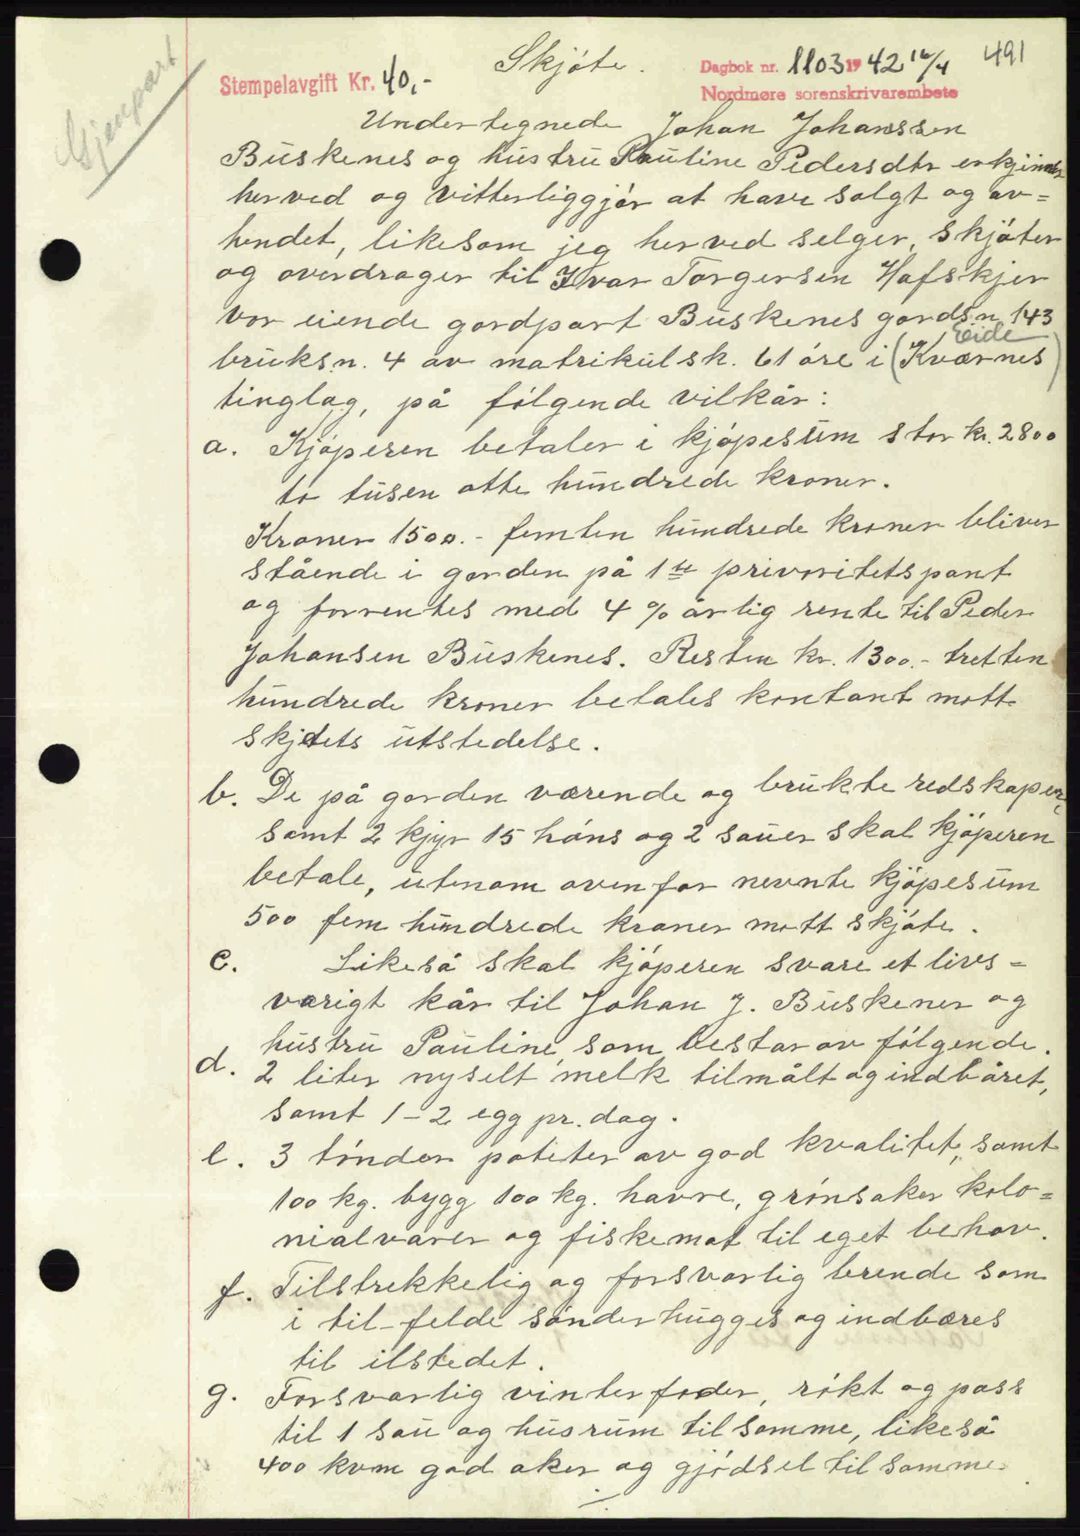 Gjenpart
Skjøte.
491
Stempelavgift Kr. 40,-
Dagbok nr. 1103 1942 16/4
Nordmøre sorenskrivarembete
Undertegnede Johan Johanssen
Buskenes og hustru Pauline Pedersdtr erkjinner
herved og vitterliggjør at have solgt og av=
hendet, likesom jeg herved selger, skjøter
og overdrager til Ivar Torgersen Hafskjer
vor eiende gardpart Buskenes gardsn. 143
Eide
bruksn. 4 av matrikulsk. 61 øre i (Kværnes)
tinglag, på følgende vilkår:
a. Kjøperen betaler i kjøpesum stor kr. 2800
to tusen otte hundrede kroner.
Kroner 1500.- femten hundrede kroner bliver
stående i garden på 1ste privoritetspant
og forrentes med 4 % årlig rente til Peder
Johansen Buskenes. Resten kr. 1300.- tretten
hundrede kroner betales kontant mott
skjøtets utstedelse.
b. De på garden værende og brukte redskaper,
samt 2 kjyr 15 høns og 2 sauer skal kjøperen
betale, utenom ovenfor nevnte kjøpesum
500 fem hundrede kroner mott skjøte.
c. Likeså skal kjøperen svare et livs=
varigt kår til Johan J. Buskenes og
hustru Pauline, som bestar av følgende.
d. 2 liter nyselt melk tilmålt og indbåret,
samt 1-2 egg pr. dag.
e. 3 tønder poteter av god kvalitet, samt
100 kg. bygg 100 kg. havre, grønsaker kolo=
nialvarer og fiskemat til eget behov.
f. Tilstrekkelig og forsvarlig brende som
i til-felde sønderhugges og indbæres
til ilstedet.
g. Forsvarlig vinterfoder, røkt og pass
til 1 sau og husrum til samme, likeså
400 kvm god aker og gjødsel til samme.